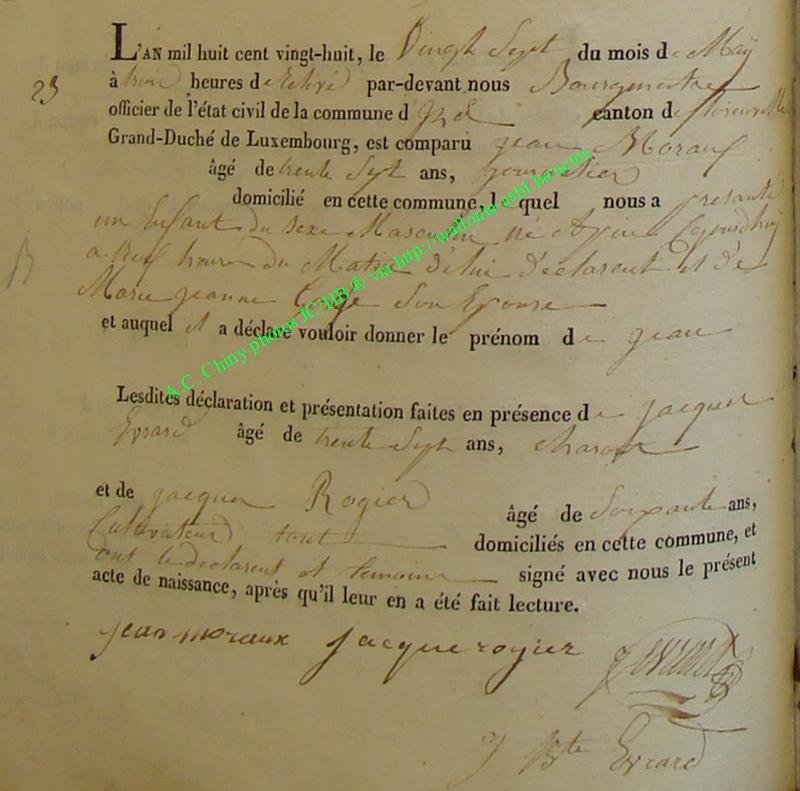 L'AN mil huit cent vingt-huit, le Vingt Sept du mois de May
23 à trois heures de relevé par-devant nous Bourgmestre
officier de l'état civil de la commune d canton de florenville
Grand-Duché de Luxembourg, est comparu jean Moraux
âgé de trente Sept ans, journalier
domicilié en cette commune, lequel nous a presenté
un Enfant du sexe Masculin né
heures du Matin de lui declarent et de
Marie jeanne Son Epouse
et auquel il a déclaré vouloir donner le prénom de jean
A.C. Chiny photos JC/HB ® via http://wallonia-asbl.be/actes
Lesdites déclaration et présentation faites en présence de jacques
Evrard âgé de trente Sept ans, charon
et de jacques Rogier âgé de Soixante ans,
Cultivateur tout domiciliés en cette commune, et
ont le declarent et temoins signé avec nous le présent
acte de naissance, après qu'il leur en a été fait lecture.
jean moraux jacque rogier
J Bte Evrard